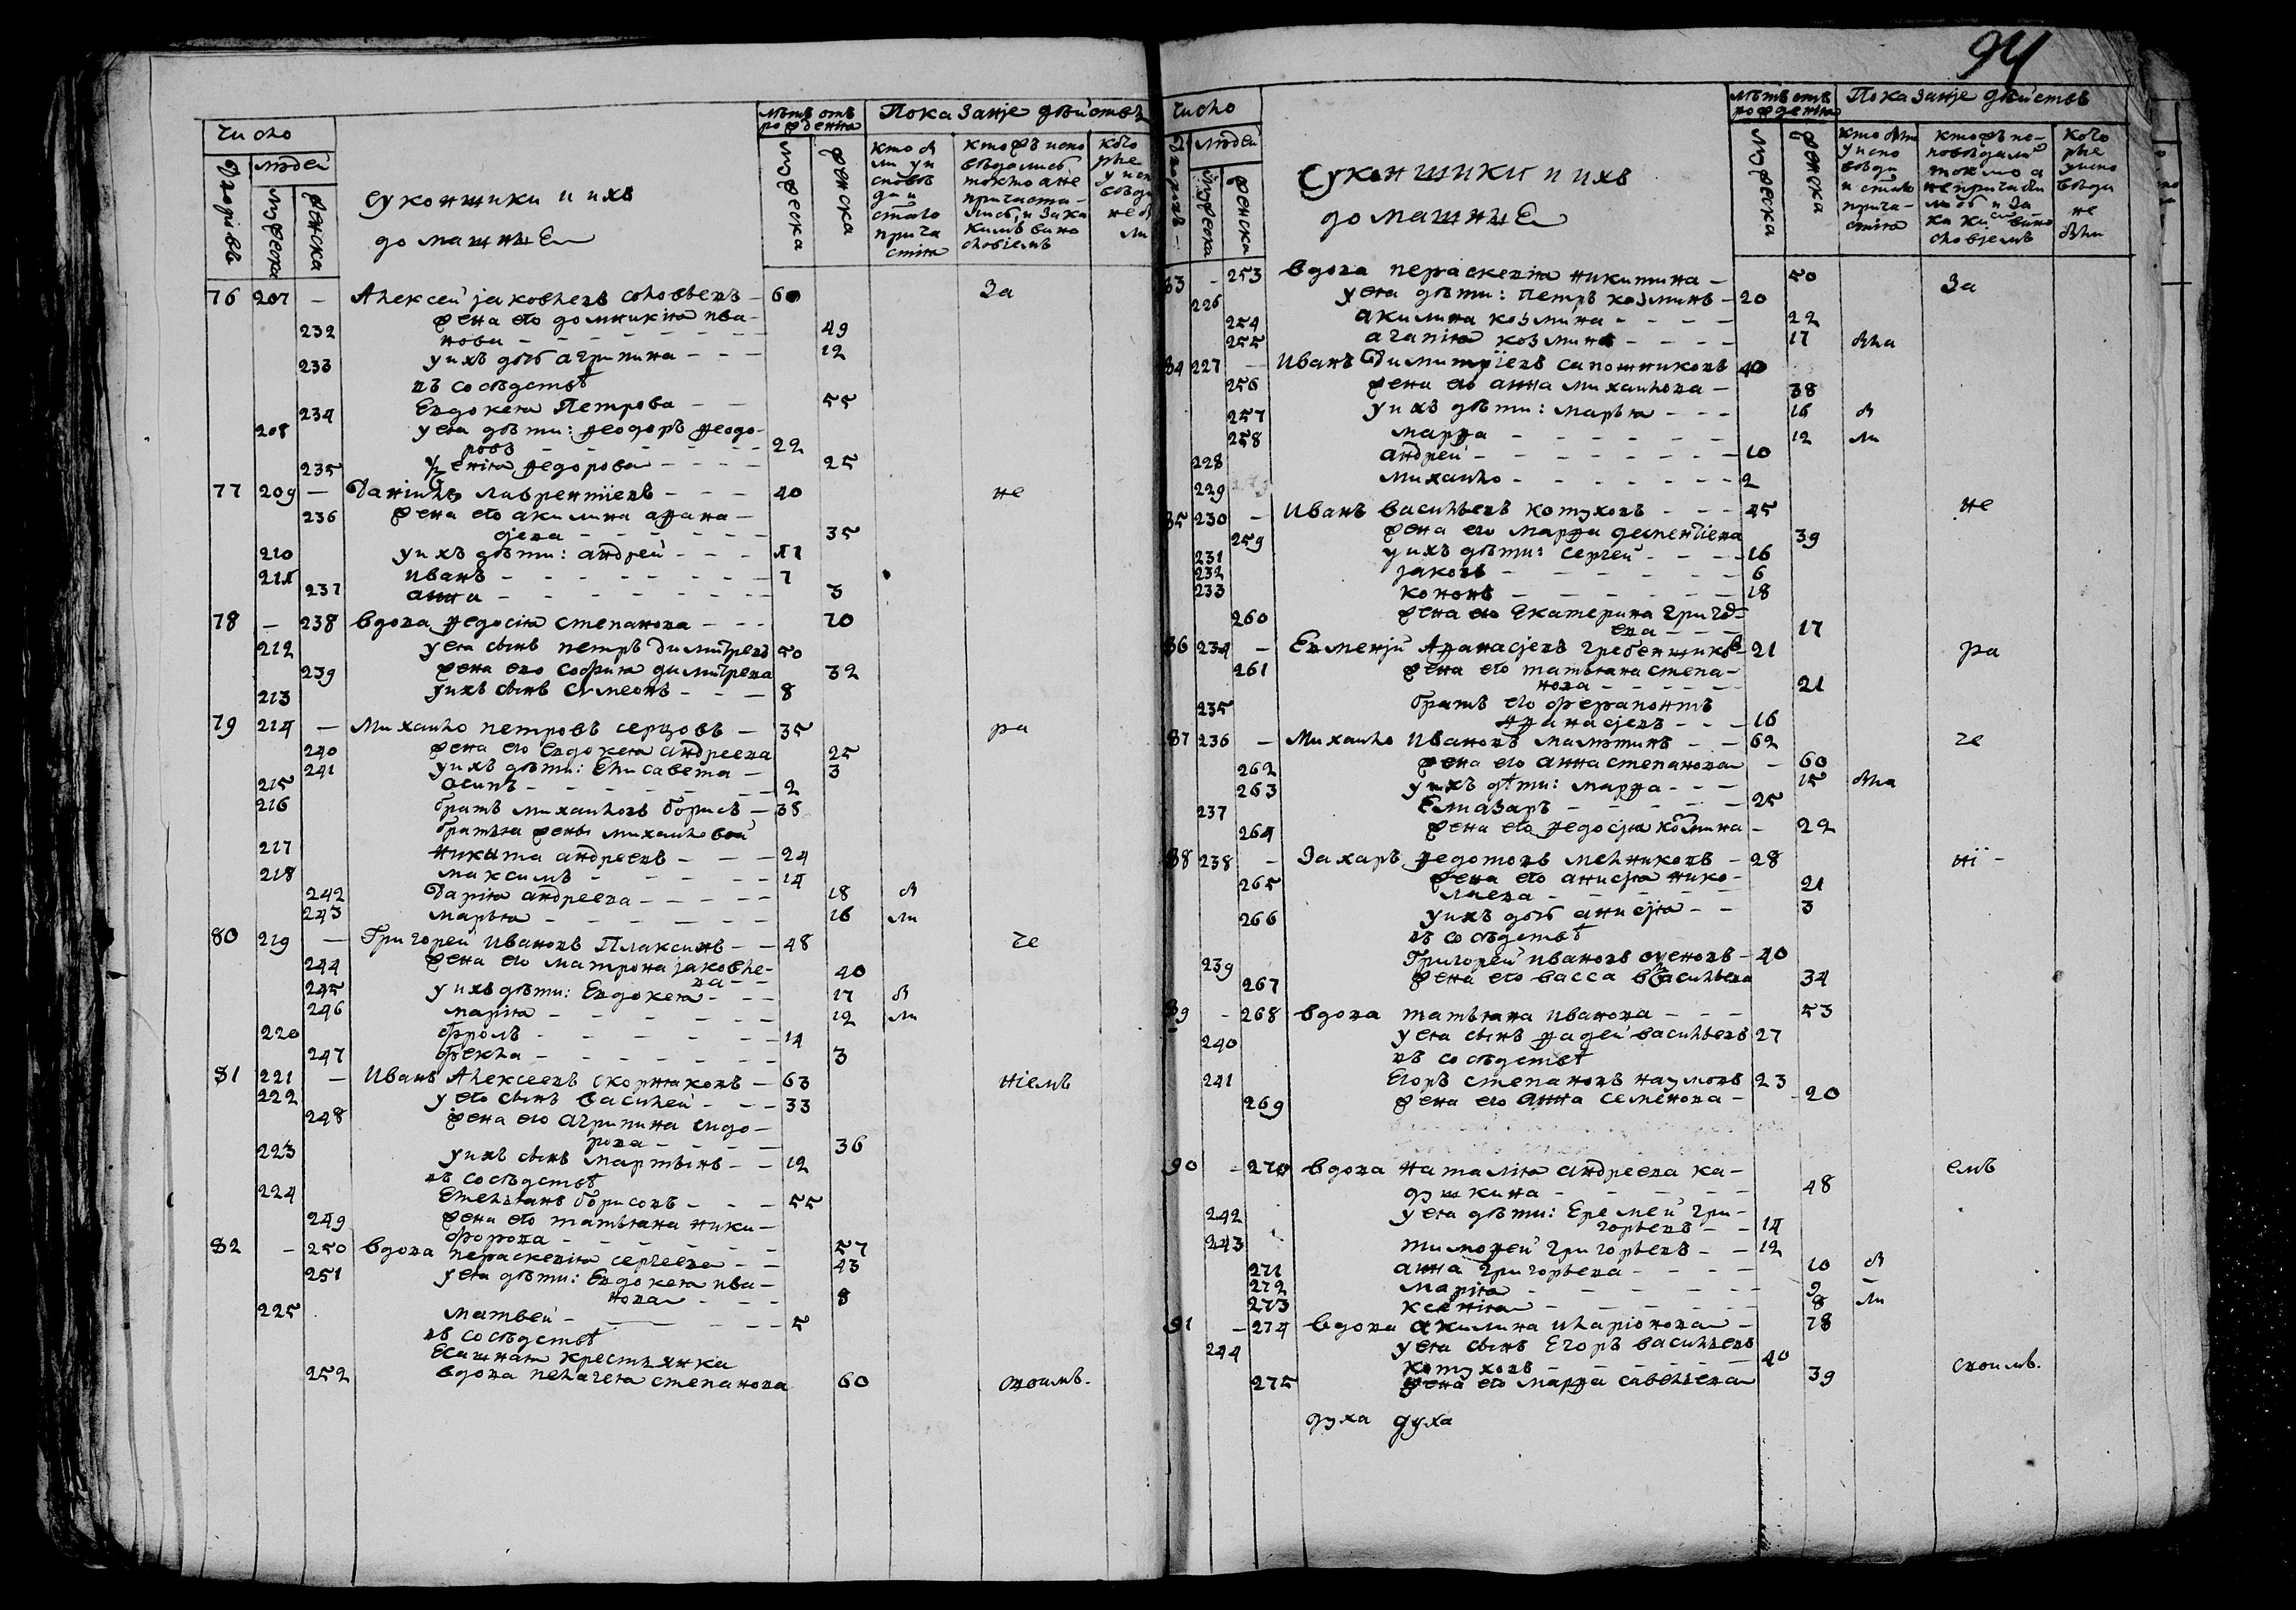 94
число
дворовъ
людей
мужеска
женска
суконщики и ихъ
домашние
лѣтъ отъ
рожденiя
мужеска
женска
Показанiе дѣйствъ
76 207 — Алексей яковлевъ соловьевъ — 60 За
жена его домникия ива-
232 нова — 49
233 у ихъ дочь агрипина — 12
въ соседствѣ
234 Евдокея Петрова — 55
208 у ея дѣти: феодоръ феодо-
ровъ — 22
235 федорова — 25
77 209 — Данiилъ лаврентiевъ — 40 не
236 жена его акилина афана-
сьева — 35
210 у ихъ дѣти: андрей — 11
211 иванъ — 7
237 анна — 3
78 — 238 вдова федосiя степанова — 70
212 у ея сынъ петръ димитревъ 50
239 жена его софия димитрева 32
213 у ихъ сынъ симеонъ — 8
79 214 — Михаило петровъ серцовъ — 35 ра
240 жена его евдокея андреева 25
241 у ихъ дѣти: елисавета — 3
215 осипъ — 2
216 братъ михаиловъ борисъ — 38
братья жены михаиловой
217 никита андреевъ — 24
218 максимъ — 14
242 Дарiя андреева — 18 бы
243 марья — 16 ли
80 219 — Григорей Ивановъ Плаксинъ — 48 че
244 жена его матрона яковле-
ва — 40
245 у ихъ дѣти: Евдокея — 17 бы
246 марiя — 12 ли
220 фролъ — 14
247 фекла — 3
81 221 — Иванъ Алексеевъ скорняковъ — 63 нiемъ
222 у его сынъ василей — 33
248 жена его агрипина сидо-
рова — 36
223 у ихъ сынъ мартынъ — 12
въ соседствѣ
224 Емельянъ борисовъ — 55
249 жена его татьяна ники-
форова — 57
82 — 250 вдова параскевiя сергеева — 43
251 у ея дѣти: Евдокея ива-
нова — 8
225 матвей — 5
въ соседствѣ
крестьянка
252 вдова пелагея степанова 60 своимъ.
число
дворовъ
людей
мужеска
женска
Суконщики и ихъ
домашние
лѣтъ отъ
рожденiя
мужеска
женска
Показанiе дѣйствъ
83 — 253 вдова параскевiя никитина — 50 За
226 у ея дѣти: петръ козминъ — 20
254 акилина козмина — 22
255 агапiя козмина — 17 была
84 227 — Иванъ Димитрiевъ сапожниковъ 40
256 жена его анна михаилова — 38
257 у ихъ дѣти: марья — 16 бы
258 марфа — 12 ли
228 андрей — 10
229 михаило — 2
85 230 — Иванъ васильевъ котуховъ — 45 не
259 жена его марфа дементiева 39
231 у ихъ дѣти: сергей — 16
232 яковъ — 6
233 кононъ — 18
260 жена его Екатерина григорь-
ева — 17
86 234 — Евменiй Афанасьевъ гребенщиковъ 21 ра
261 жена его татьяна степа-
нова — 21
235 братъ его ферапонтъ
афанасьевъ — 16
87 236 — Михаило Ивановъ малютинъ — 62 че
262 жена его анна степанова — 60
263 у ихъ дѣти: марфа — 15 была
237 Елиазаръ — 25
264 жена его федосья козмина — 22
88 238 — Захаръ федотовъ мельниковъ — 28 нi-
265 жена его анисья нико-
лаева — 21
266 у ихъ дочь анисья — 3
въ соседствѣ
239 Григорей ивановъ — 40
267 жена его васса васильева 34
89 — 268 вдова татьяна иванова — 53
240 у ея сынъ фадей васильевъ 27
въ соседствѣ
241 Егоръ степановъ наумовъ 23
269 жена его анна семенова — 20
90 — 270 вдова наталiя андреева ка-
душкина — 48 емъ
242 у ея дѣти: Еремей гри-
горьевъ — 14
243 тимофей григорьевъ — 12
271 анна григорьева — 10 бы
272 марiя — 9 —
273 ксенiя — 8 ли
91 — 274 вдова акилина иларiонова — 78
244 у ея сынъ Егоръ васильевъ
котуховъ — 40
275 жена его марфа савельева 39 своимъ.
духа духа